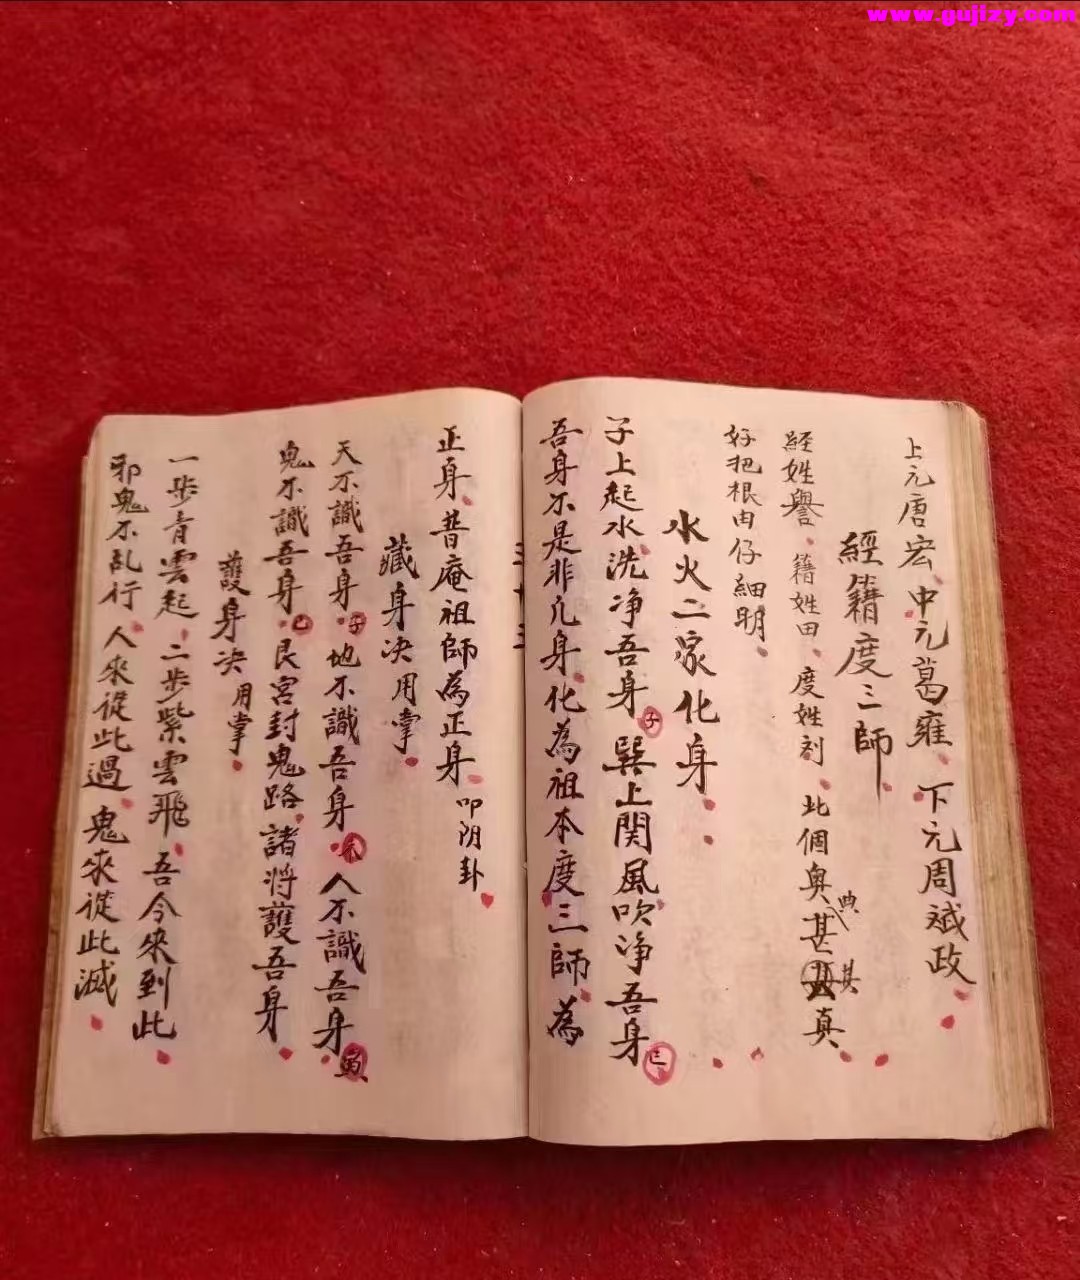 www.gujizy.com
上元唐宏中元葛雍、下元周斌政
經籍度三師
経姓譽、籍姓田、度姓刘、此個奥典甚其真
好把根由仔細明、
水火二家化身
子上起水洗净吾身子巽上関風吹净吾身巳
吾身不是非凢身、化為祖本度三師為
正身、普庵祖師為正身、叩阴卦
藏身决用掌
天不識吾身子地不識吾身 人不識吾身寅
鬼不識吾身巳艮宮封鬼路、諸将護吾身
護身决用掌
一步青雲起、二步紫雲飛、吾令來到此
邪鬼不乱行、人來從此過、鬼來從此滅